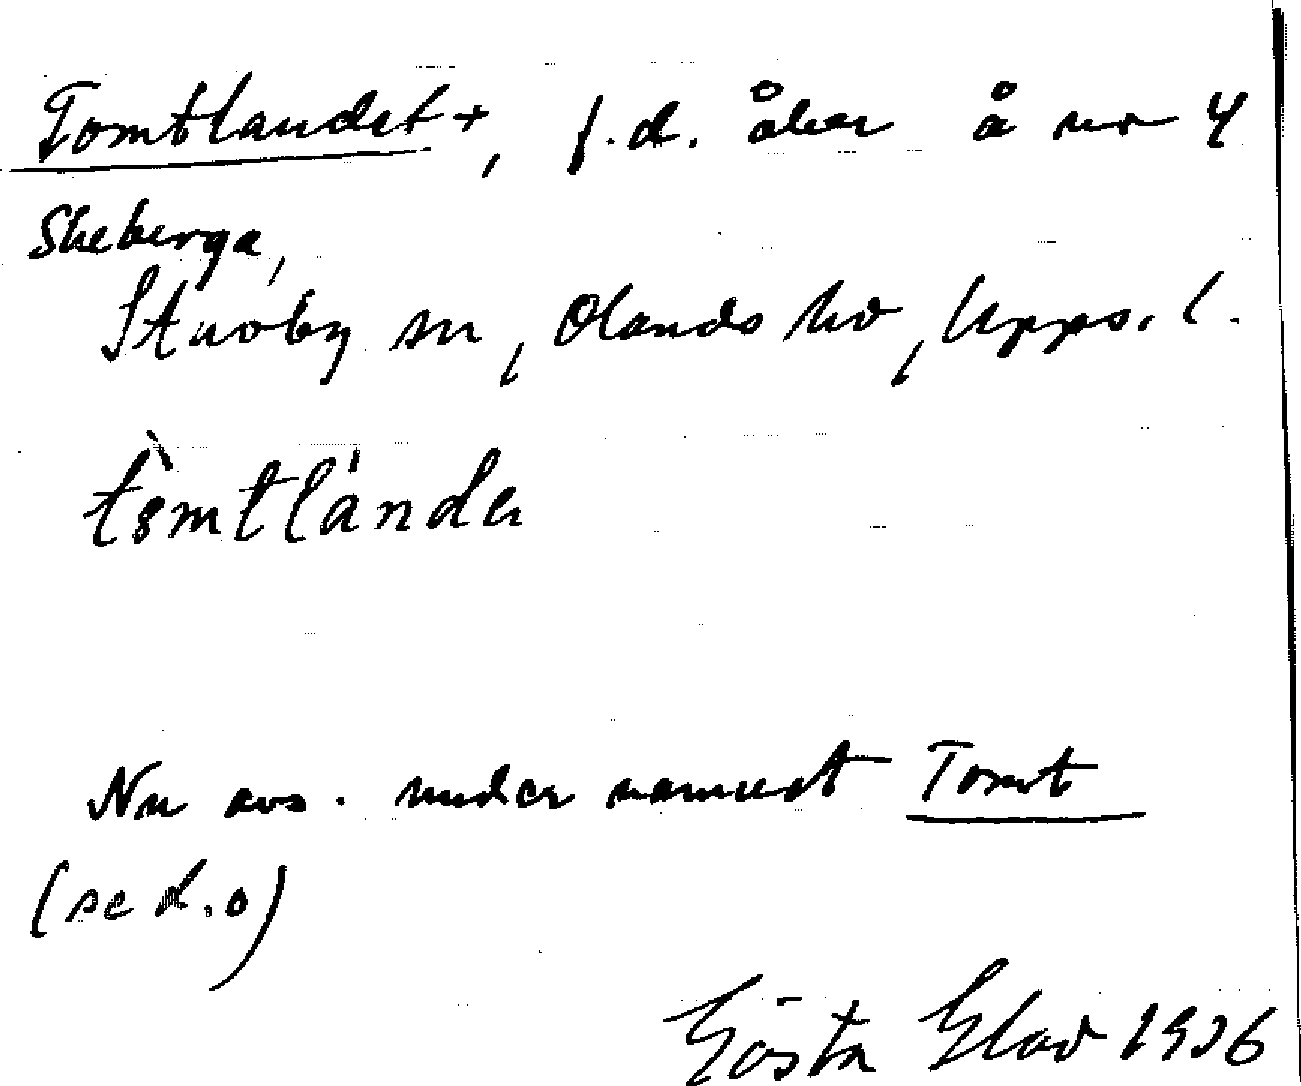 Tomtlandet +, f.d. åker å nr 4
Skeberga,
Stavby sn, Olands hd, Upps. l.
tòmtlánde
Nu avs. under namnet Tomt
(se d.o)
Gösta Glad 1936